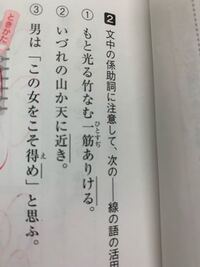 2 文中の係助詞に注意して、次の――線の語の活用
① もと光る竹なむ一筋ありける。
ひとすぢ
② いづれの山か天に近き。
③ 男は「この女をこそ得め」と思ふ。
え
ときかた